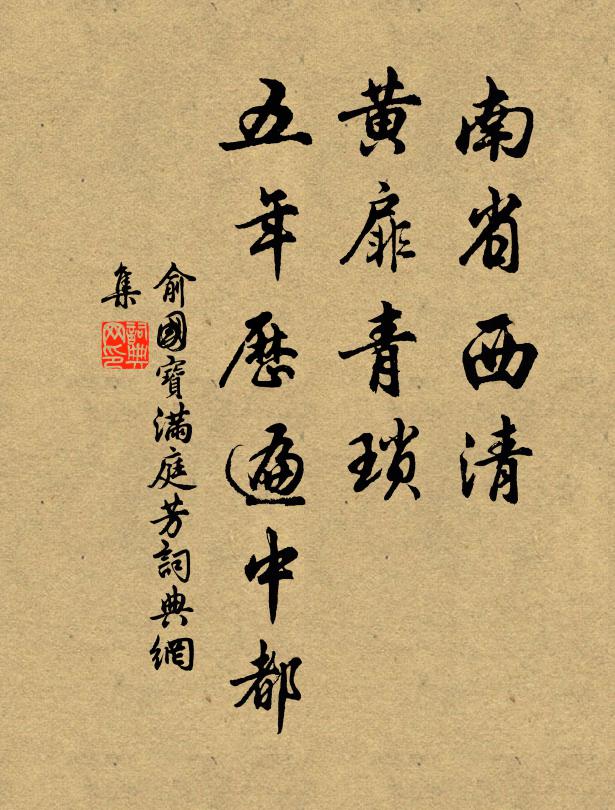 南省西清
黃扉青瑣
五年歷遍中都
俞國寶滿庭芳詞典網
集
詞典网印